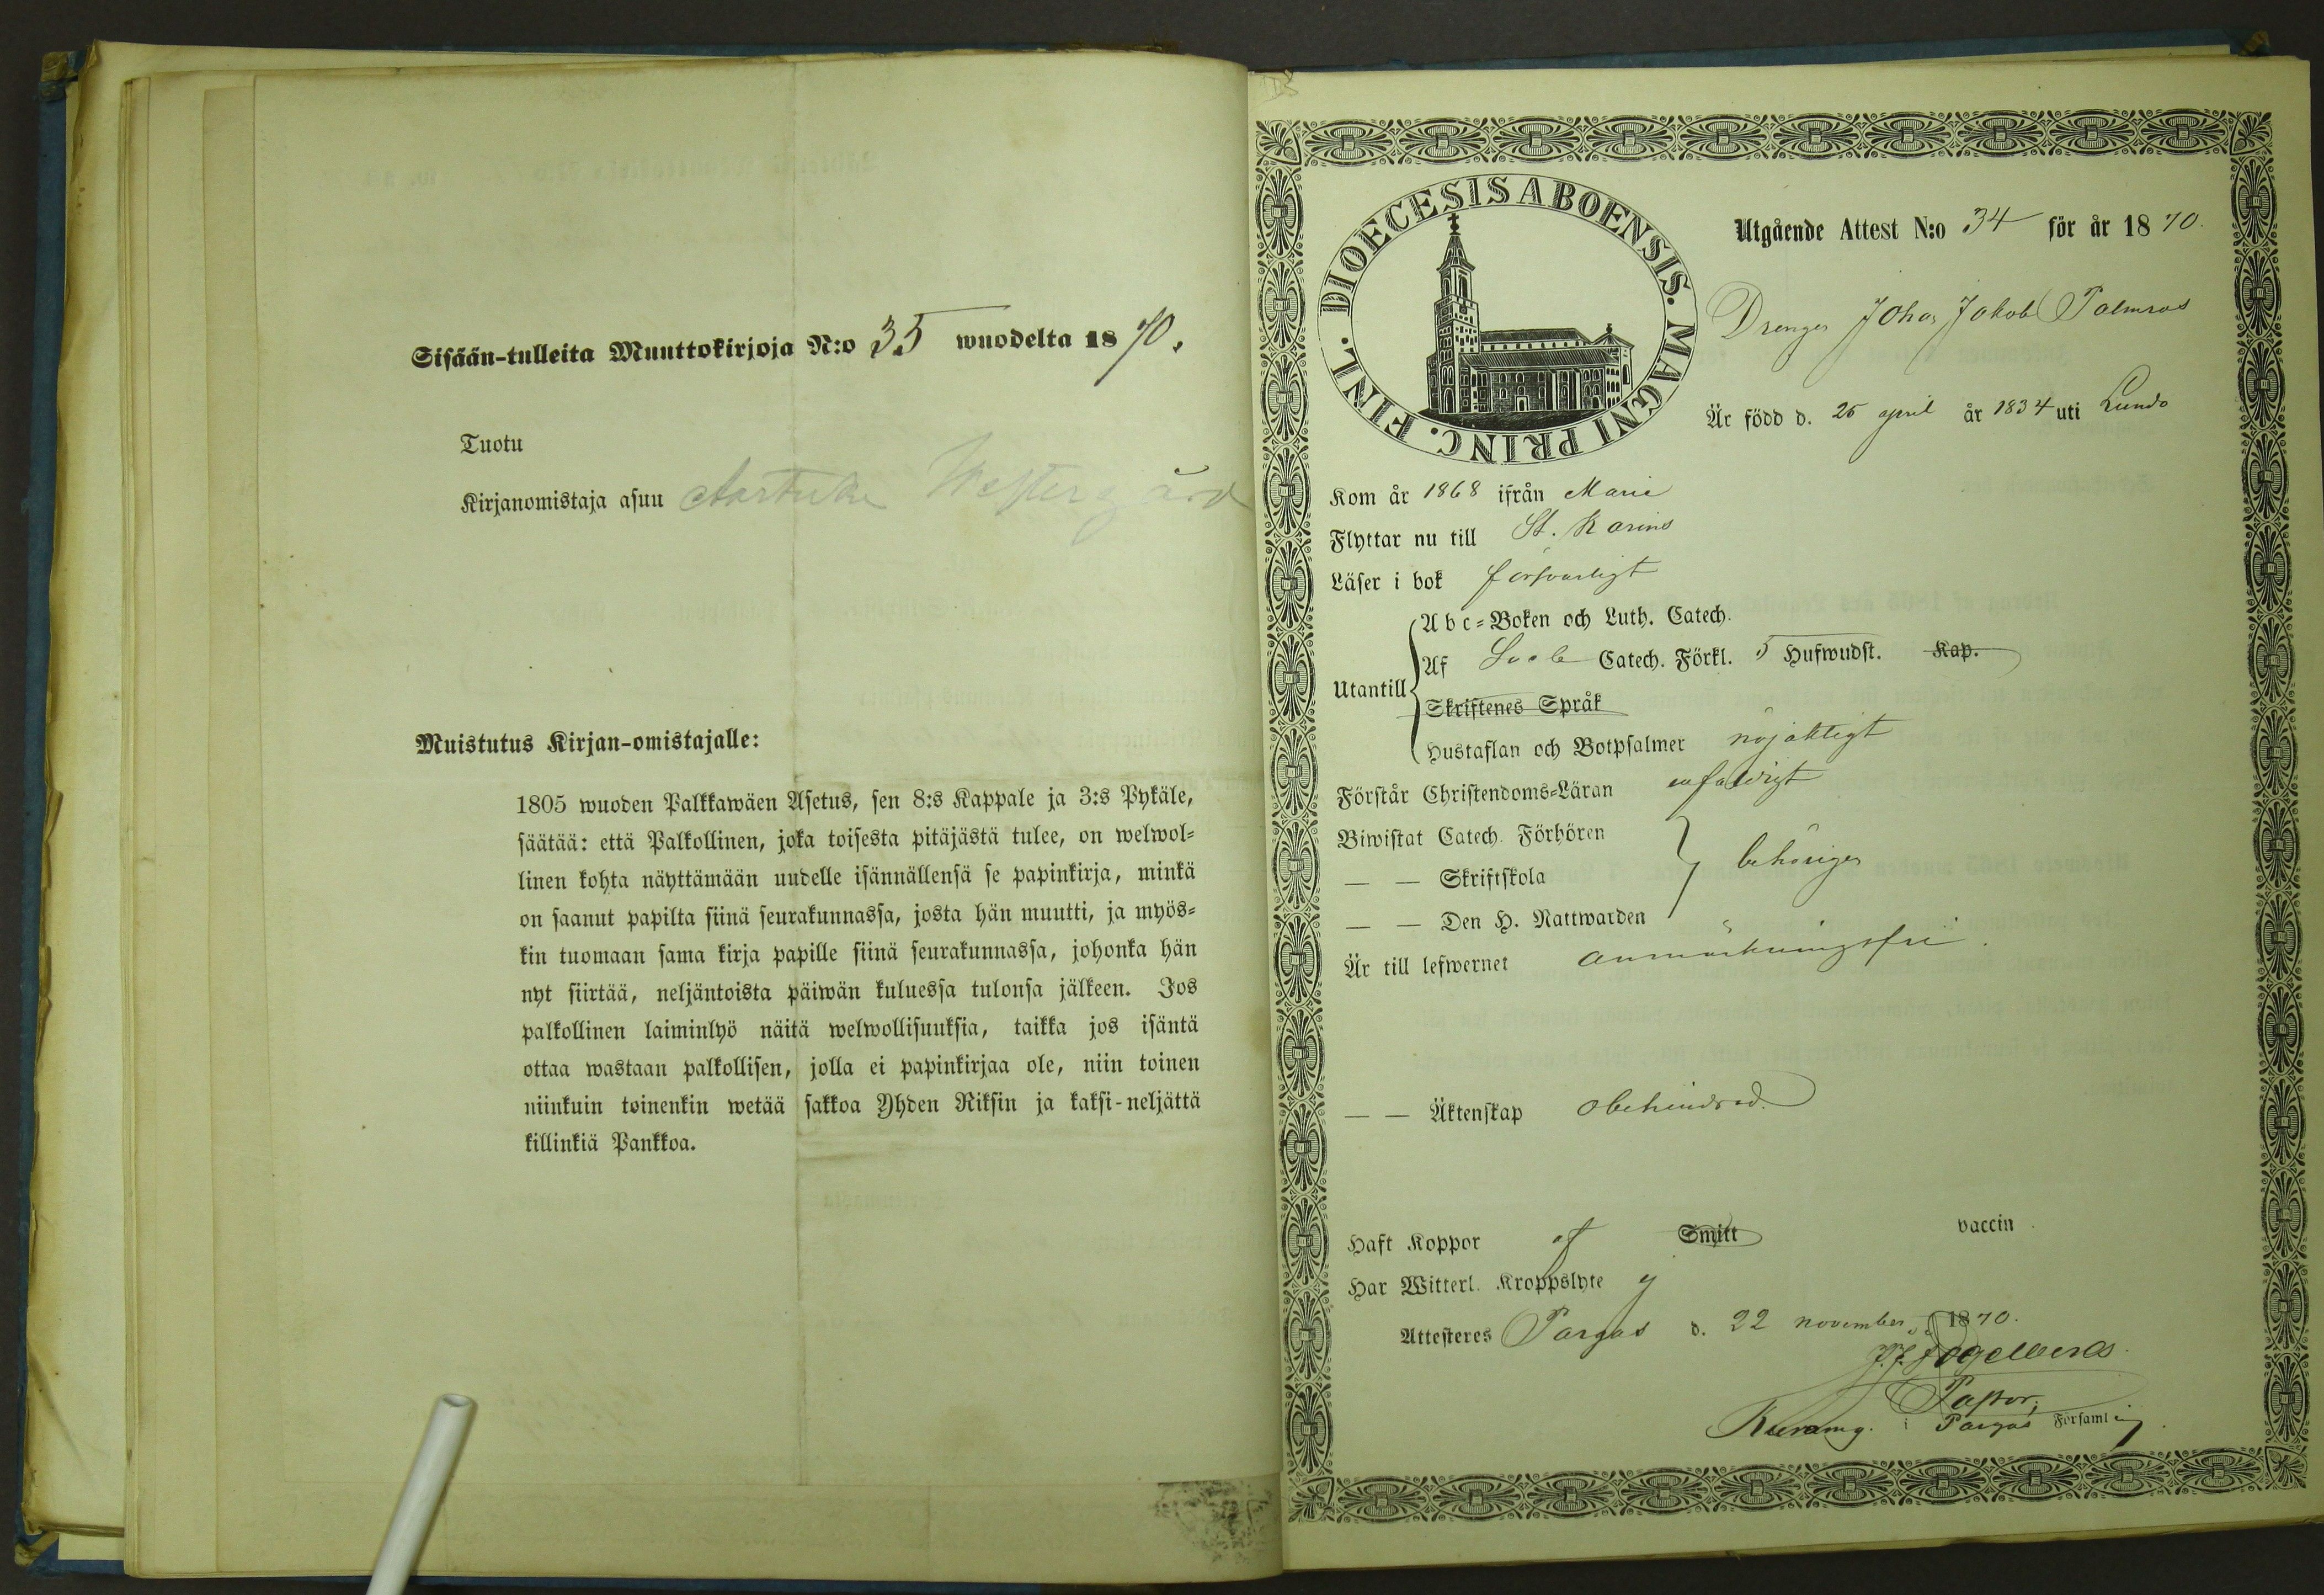 Sisään-tulleita Muuttokirjoja N:o 35 wuodelta 1870.
Tuotu
Kirjanomistaja asuu Westergård
Muistutus Kirjan-omistajalle:
1805 wuoden Palkkawäen Asetus, sen 8:s Kappale ja 3:s Pykäle,
säätää: että Palkollinen, joka toisesta pitäjästä tulee, on welwol-
linen kohta näyttämään uudelle isännällensä se papinkirja, minkä
on saanut papilta siinä seurakunnassa, josta hän muutti, ja myös-
kin tuomaan sama kirja papille siinä seurakunnassa, johonka hän
nyt siirtää, neljäntoista päiwän kuluessa tulonsa jälkeen. Jos
palkollinen laiminlyö näitä welwollisuuksia, taikka jos isäntä
ottaa wastaan palkollisen, jolla ei papinkirjaa ole, niin toinen
niinkuin toinenkin wetää sakkoa Yhden Riksin ja kaksi-neljättä
killinkiä Pankkoa.
DIOECESIS ABOENSIS. MAGNI PRINC. FINL.
Utgående Attest N:o 34 för år 1870.
Drengen Johan Jakob Palmros
Är född d. 25 april år 1834 uti Lundo
Kom år 1868 ifrån Marie
Flyttar nu till St. Karins
Läser i bok försvarligt
Utantill
Abc-Boken och Luth. Catech.
Af Catech. Förkl. 5 Hufwudst. Kap.
Skriftenes Språk
Hustaflan och Botpsalmer nöjaktigt
Förstår Christendoms-Läran enfaldigt
Biwistat Catech. Förhören
— — Skriftskola behörigen
— — Den H. Nattwarden
Är till lefwernet anmärkningsfri.
— — Äktenskap obehindrad.
Haft Koppor af Smitt vaccin
Har Witterl. Kroppslyte ej
Attesteres Pargas d. 22 november 1870.
J. J. Fogelberg
Pastor,
i Pargas Församling